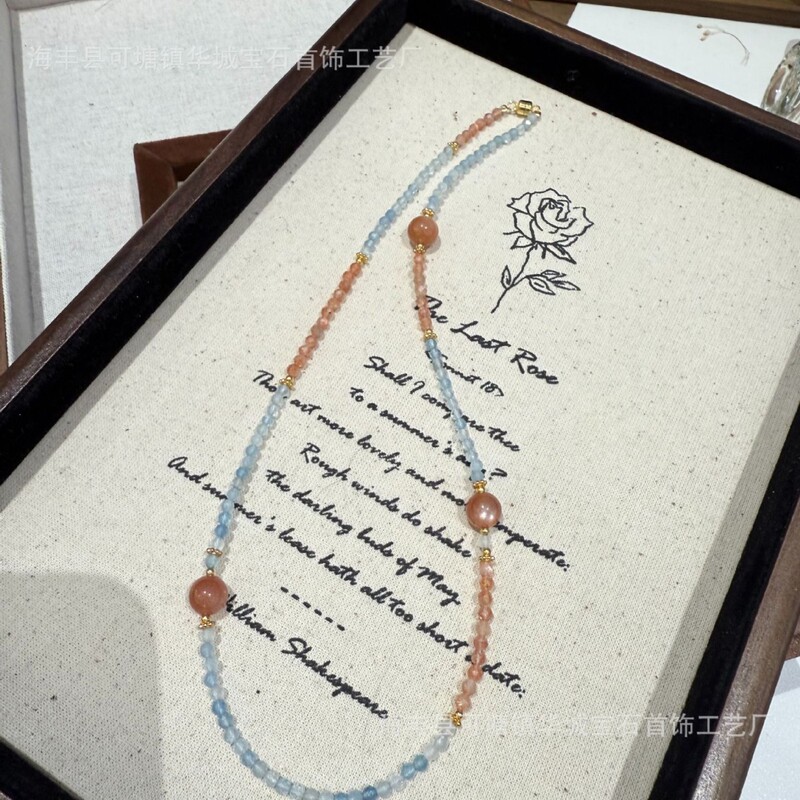 海丰县可塘镇华城宝石首饰工艺厂
The Last Rose
Sonnet 18
Shall I compare thee
to a summer's day?
Thou art more lovely and more temperate:
Rough winds do shake
the darling buds of May,
And summer's lease hath all too short a date:
------
William Shakespeare
海丰县可塘镇华城宝石首饰工艺厂